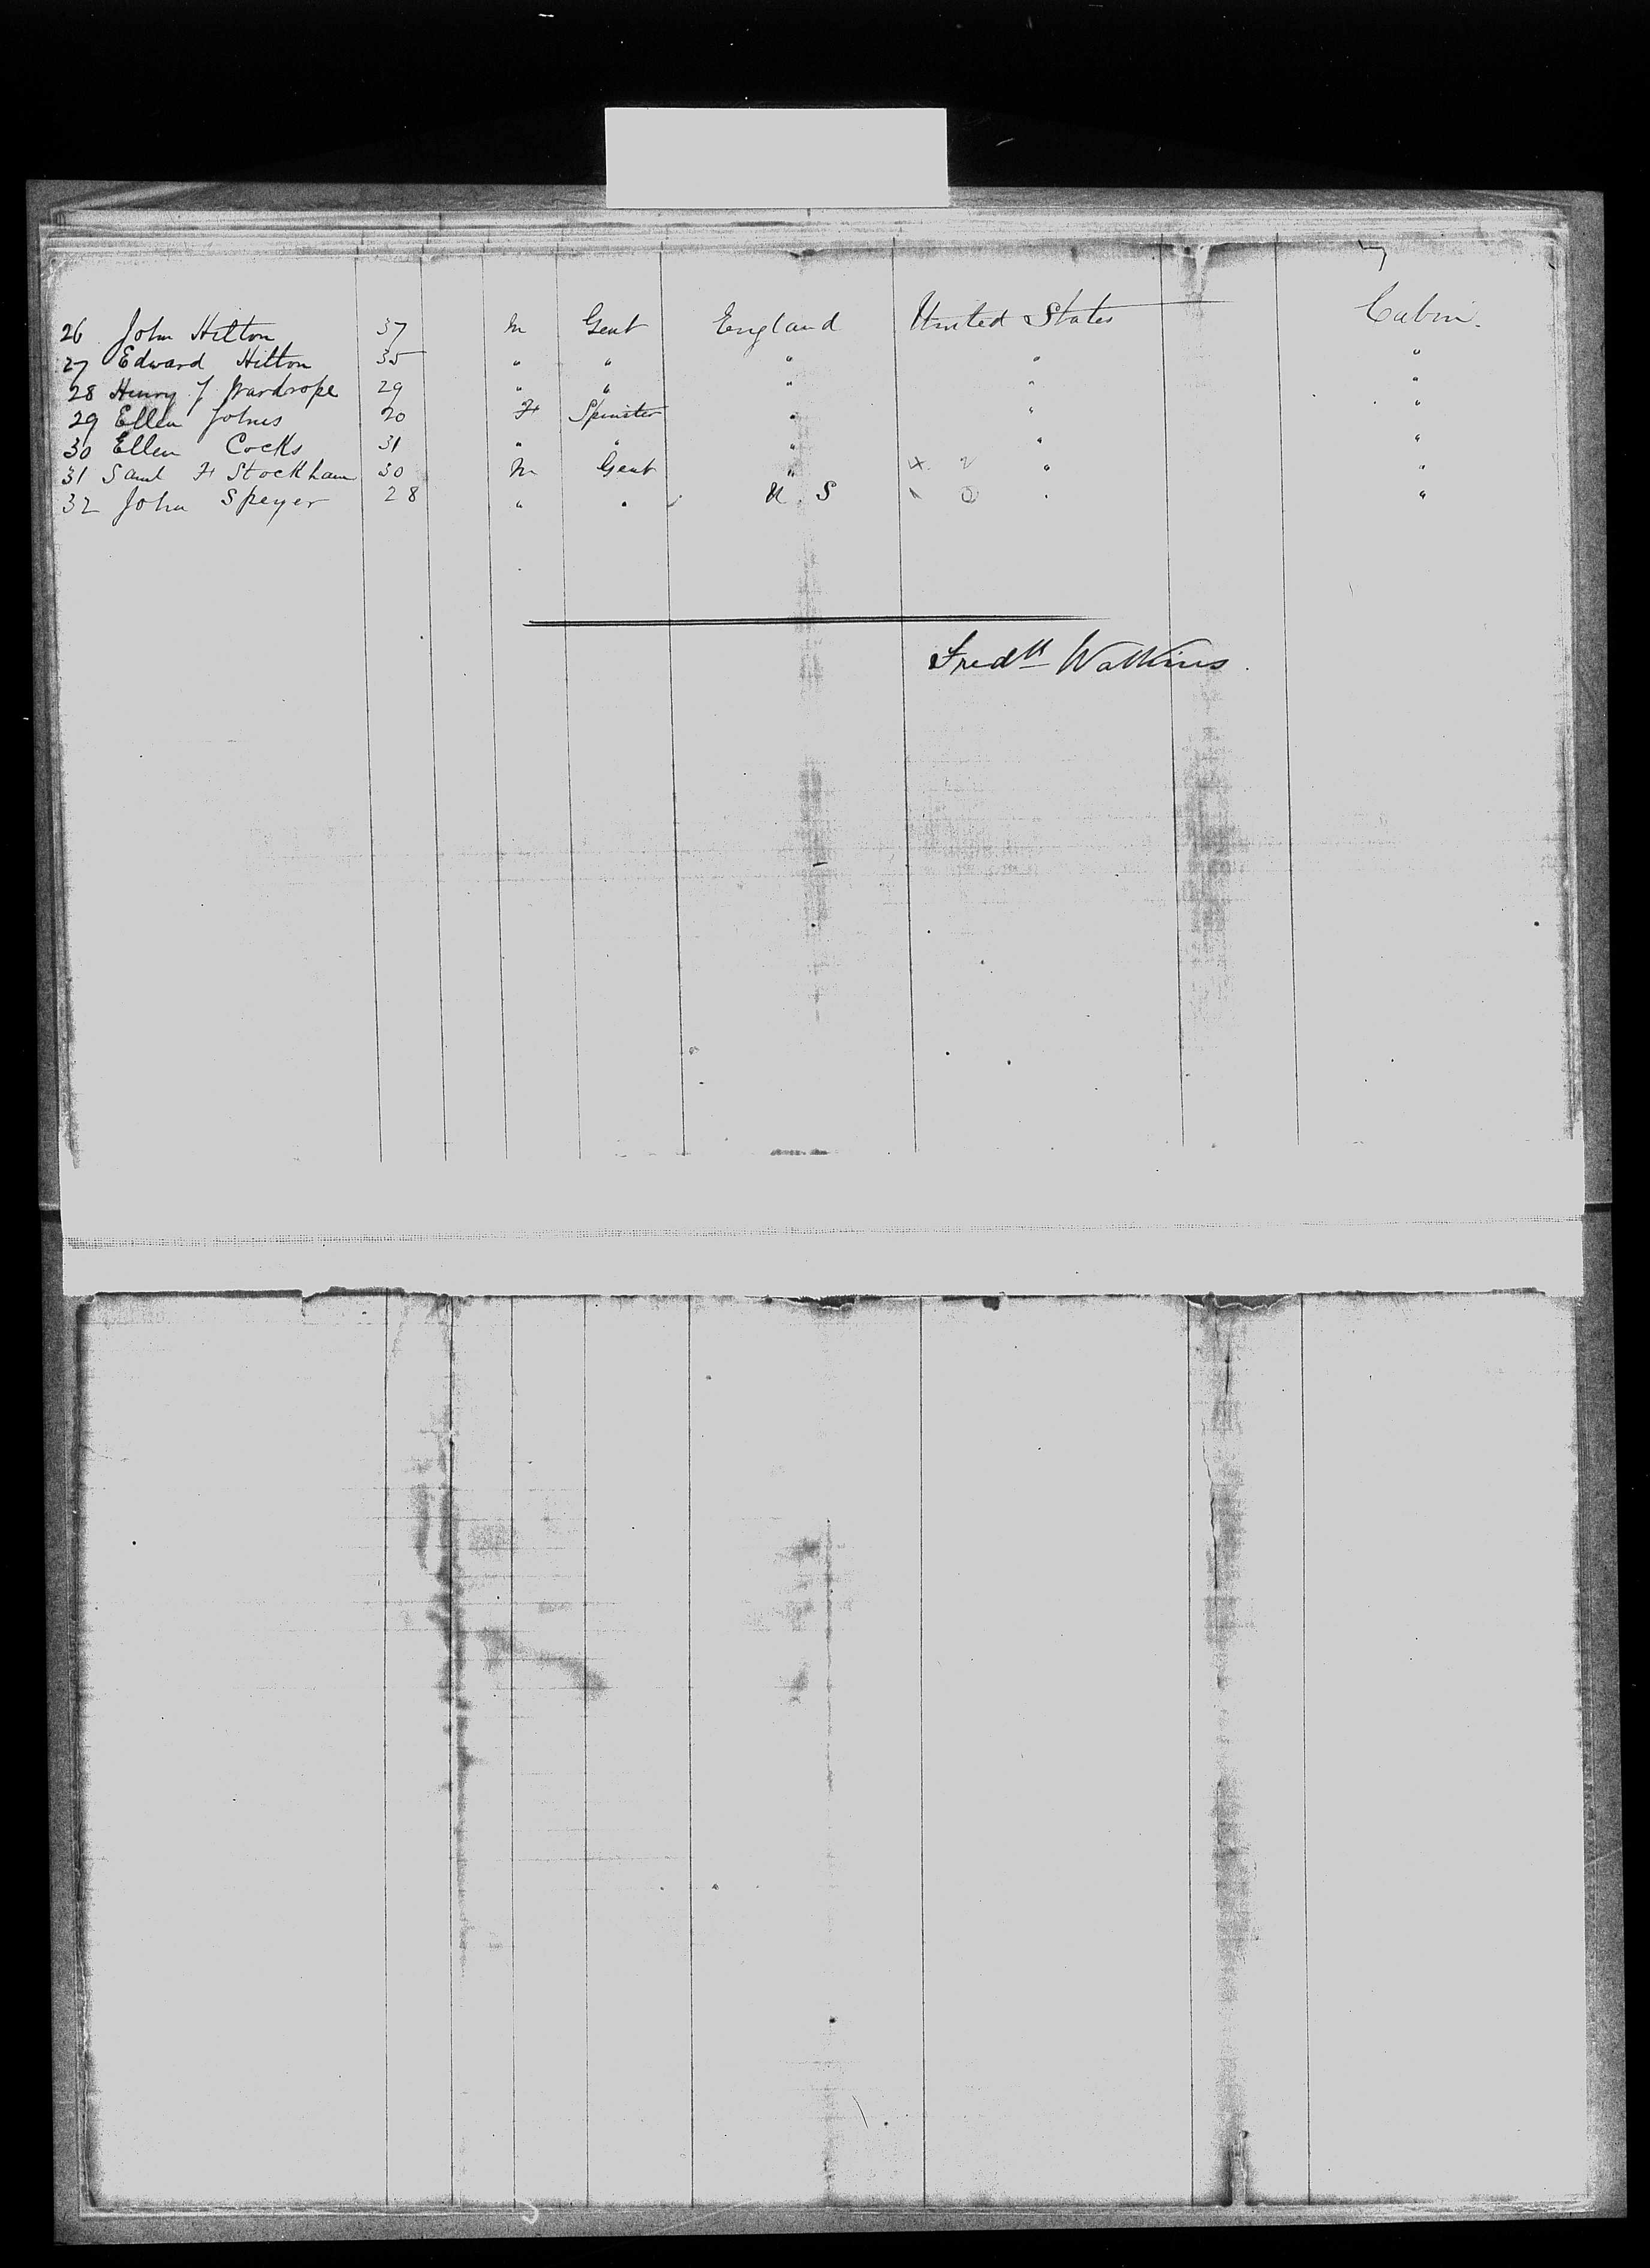 7
26 John Hilton 37 M Gent England United States Cabin.
27 Edward Hilton 35 " " " " "
28 Henry J Wardrope 29 " " " " "
29 Ellen Johns 20 F Spinster " " "
30 Ellen Cocks 31 " " " " "
31 Saml F Stockham 30 M Gent " " "
32 John Speyer 28 " " U.S " "
Fredk Watkins.